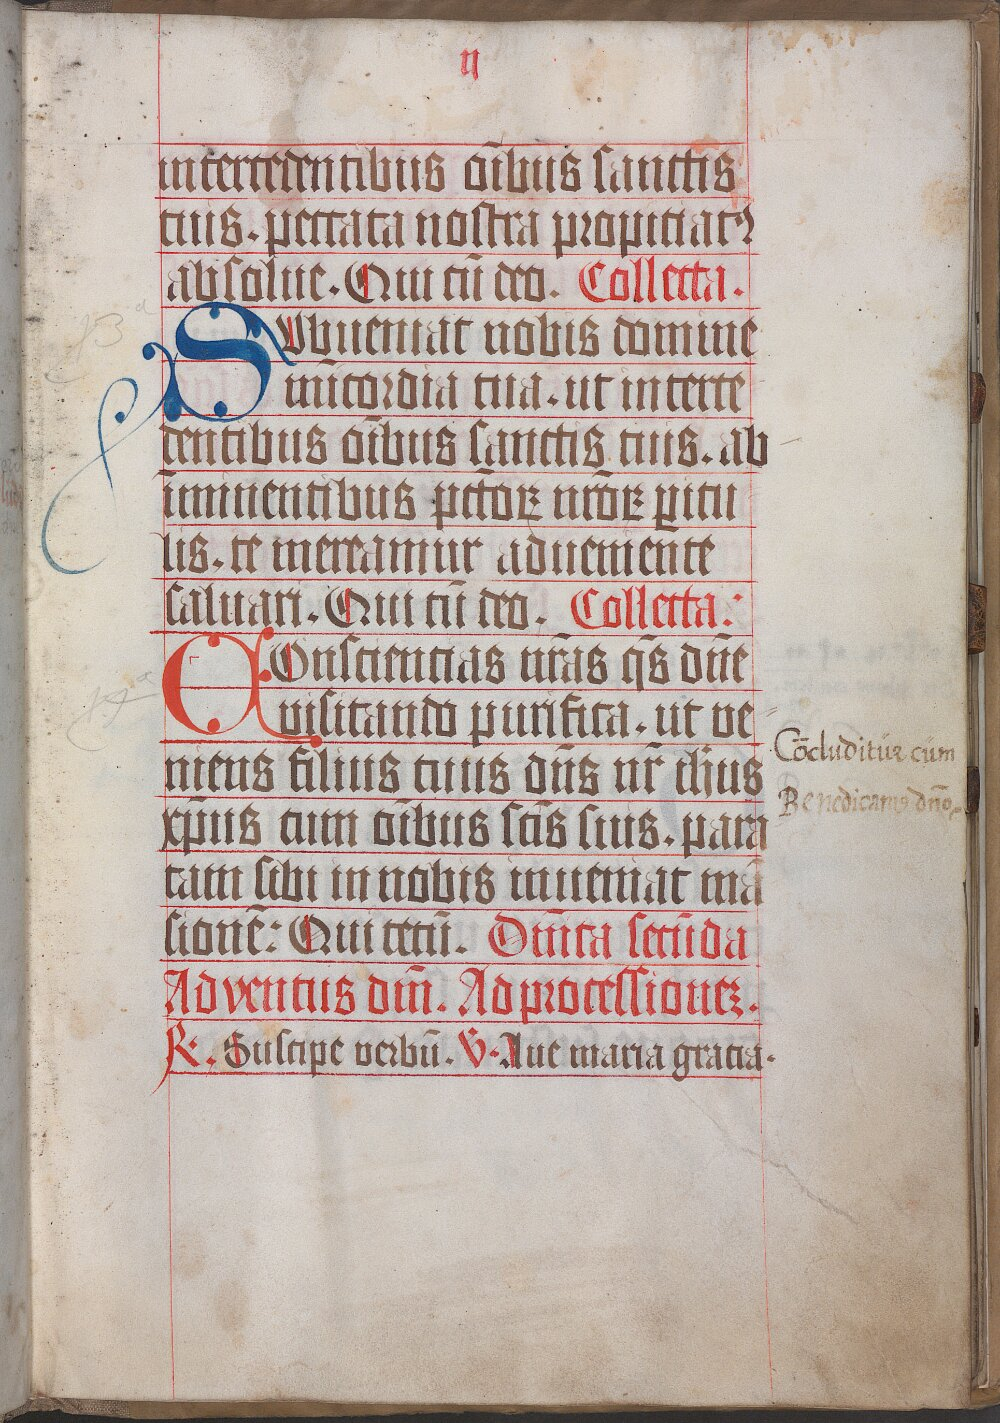 ij
intercedentibus oı̄bus sanctis
tuis. peccata nostra propiciatꝰ
absolue. Qui cū deo. Collecta.
SUbueniat nobis domine
mı̄cordia tua. ut interce
dentibus oı̄bus sanctis tuis. ab
ı̄minentibus pctōꝝ nrōꝝ ꝑicu
lis. te mereamur adueniente
saluari. Qui cū deo. Collecta:
COnsciencias nr̄as qs̄ dn̄e
visitando purifica. ut ve
niens filius tuus dn̄s nr̄ ih̄us
xp̄us cum oı̄bus sc̄is suis. para
tam sibi in nobis inueniat mā
sionē: Qui tecū. Dn̄ica secūda
Adventus dnı̄. Ad processionez.
R. Suscipe verbū. V. Aue maria gracia.
Cōcluditur cum
Benedicamꝰ dn̄o.
13ª
14ª